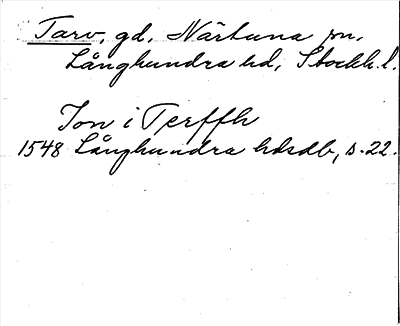 Tarv, gd, Närtuna sn,
Långhundra hd, Stockh. l.
Jon i Terffh
1548 Långhundra hdsdb, s. 22.